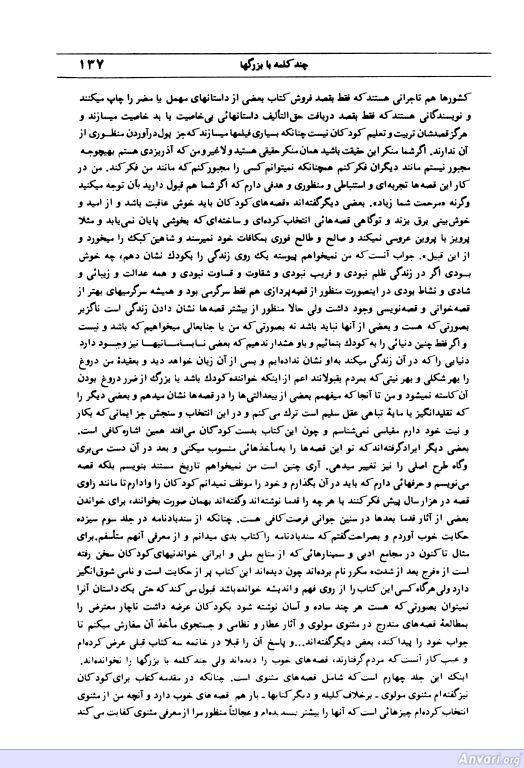 چند کلمه با بزرگها
۱۳۷
کشورها هم تاجرانی هستند که فقط بقصد فروش کتاب بعضی از داستانهای مهمل یا مضر را چاپ میکنند
و نویسندگانی هستند که فقط بقصد دریافت حق‌التألیف داستانهائی بی‌خاصیت یا بد خاصیت میسازند و
هرگز قصدشان تربیت و تعلیم کودکان نیست چنانکه بسیاری فیلمها میسازند که جز پول‌درآوردن منظوری از
آن ندارند. اگر شما منکر این حقیقت باشید همان منکر حقیقی هستید ولاغیر و من که آذریزدی هستم بهیچوجه
مجبور نیستم مانند دیگران فکر کنم همچنانکه نمیتوانم کسی را مجبور کنم که مانند من فکر کند. من در
کار این قصه‌ها تجربه‌ای و استنباطی و منظوری و هدفی دارم که اگر شما هم قبول دارید بآن توجه میکنید
وگرنه «مرحمت شما زیاد». بعضی دیگر گفته‌اند «قصه‌های کودکان باید خوش عاقبت باشد و از امید و
خوش‌بینی برق بزند و توگاهی قصه‌هائی انتخاب کرده‌ای و ساخته‌ای که بخوشی پایان نمی‌یابد و مثلا
پرویز با پروین عروسی نمیکند و صالح و طالح فوری بمکافات خود نمیرسند و شاهین کبک را میخورد و
از این قبیل». جواب آنست که من نمیخواهم پیوسته یک روی زندگی را بکودک نشان دهم، چه خوش
بودی اگر در زندگی ظلم نبودی و فریب نبودی و شقاوت و قساوت نبودی و همه عدالت و زیبائی و
شادی و نشاط بودی در اینصورت منظور از قصه‌پردازی هم فقط سرگرمی بود و همیشه سرگرمیهای بهتر از
قصه‌خوانی و قصه‌نویسی وجود داشت ولی حالا منظور از بیشتر قصه‌ها نشان دادن زندگی است ناگزیر
بصورتی که هست و بعضی از آنها نباید باشد نه بصورتی که من یا جنابعالی میخواهیم که باشد و نیست
و اگر فقط چنین دنیائی را به کودک بنمائیم و باو هشدار ندهیم که بعضی نابسامانیها نیز وجود دارد
دنیایی را که در آن زندگی میکند به‌او نشان نداده‌ایم و بسی از آن زیان خواهد دید و بعقیدهٔ من دروغ
را بهر شکلی و بهر نیتی که بمردم بقبولانند اعم از اینکه خواننده کودک باشد یا بزرگ از ضرر دروغ بودن
آن کاسته نمیشود و من تا آنجا که میفهمم بعضی از بیعدالتی‌ها را در قصه‌ها نشان میدهم و بعضی دیگر را
که تقلیدانگیز یا مایهٔ تباهی عقل سلیم است ترک می‌کنم و در این انتخاب و سنجش جز ایمانی که بکار
و نیت خود دارم مقیاسی نمی‌شناسم و چون این کتاب بدست کودکان می‌افتد همین اشاره کافی است.
بعضی دیگر ایراد گرفته‌اند که تو این قصه‌ها را به‌مأخذهائی منسوب میکنی و بعد در آن دست می‌بری
وگاه طرح اصلی را نیز تغییر میدهی. آری چنین است من نمیخواهم تاریخ مستند بنویسم بلکه قصه
می‌نویسم و حرفهائی دارم که باید در آن بگذارم و خود را موظف نمیدانم کودکان را وادارم تا مانند راوی
قصه در هزار سال پیش فکر کنند یا هر چه را قدما نوشته‌اند وگفته‌اند بهمان صورت بخوانند، برای خواندن
بعضی از آثار قدما بعدها در سنین جوانی فرصت کافی هست. چنانکه از سندبادنامه در جلد سوم سیزده
حکایت خوب آوردم و بصراحت‌گفتم که سندبادنامه را کتاب بدی میدانم و از معرفی آنهم متأسفم. برای
مثال تاکنون در مجامع ادبی و سمینارهائی که از منابع ملی و ایرانی خواندنیهای کودکان سخن رفته
است از «فرج بعد از شدت» مکرر نام برده‌اند چون دیده‌اند این کتاب پر از حکایت است و نامی شوق‌انگیز
دارد ولی هرگاه کسی این کتاب را از روی فهم و اندیشه خوانده باشد قبول می‌کند که حتی یک داستان آنرا
نمیتوان بصورتی که هست هر چند ساده و آسان نوشته شود بکودکان عرضه داشت ناچار معترض را
بمطالعهٔ قصه‌های مندرج در مثنوی مولوی و آثار عطار و نظامی و جستجوی مأخذ آن سفارش میکنم تا
جواب خود را پیدا کند، بعضی دیگر گفته‌اند... و پاسخ آن را قبلا در خاتمه سه کتاب قبلی عرض کرده‌ام
و عیب کار آنست که مردم گرفتارند، قصه‌های خوب را دیده‌اند ولی چند کلمه با بزرگها را نخوانده‌اند.
اینک این جلد چهارم است که شامل قصه‌های مثنوی است. چنانکه در مقدمه کتاب برای کودکان
نیز گفته‌ام مثنوی مولوی - برخلاف کلیله و دیگر کتابها - باز هم قصه‌های خوب دارد و آنچه من از مثنوی
انتخاب کرده‌ام چیزهائی است که آنها را بیشتر پسندیده‌ام و عجالتاً منظور مرا از معرفی مثنوی کفایت می‌کند
Anvari.org